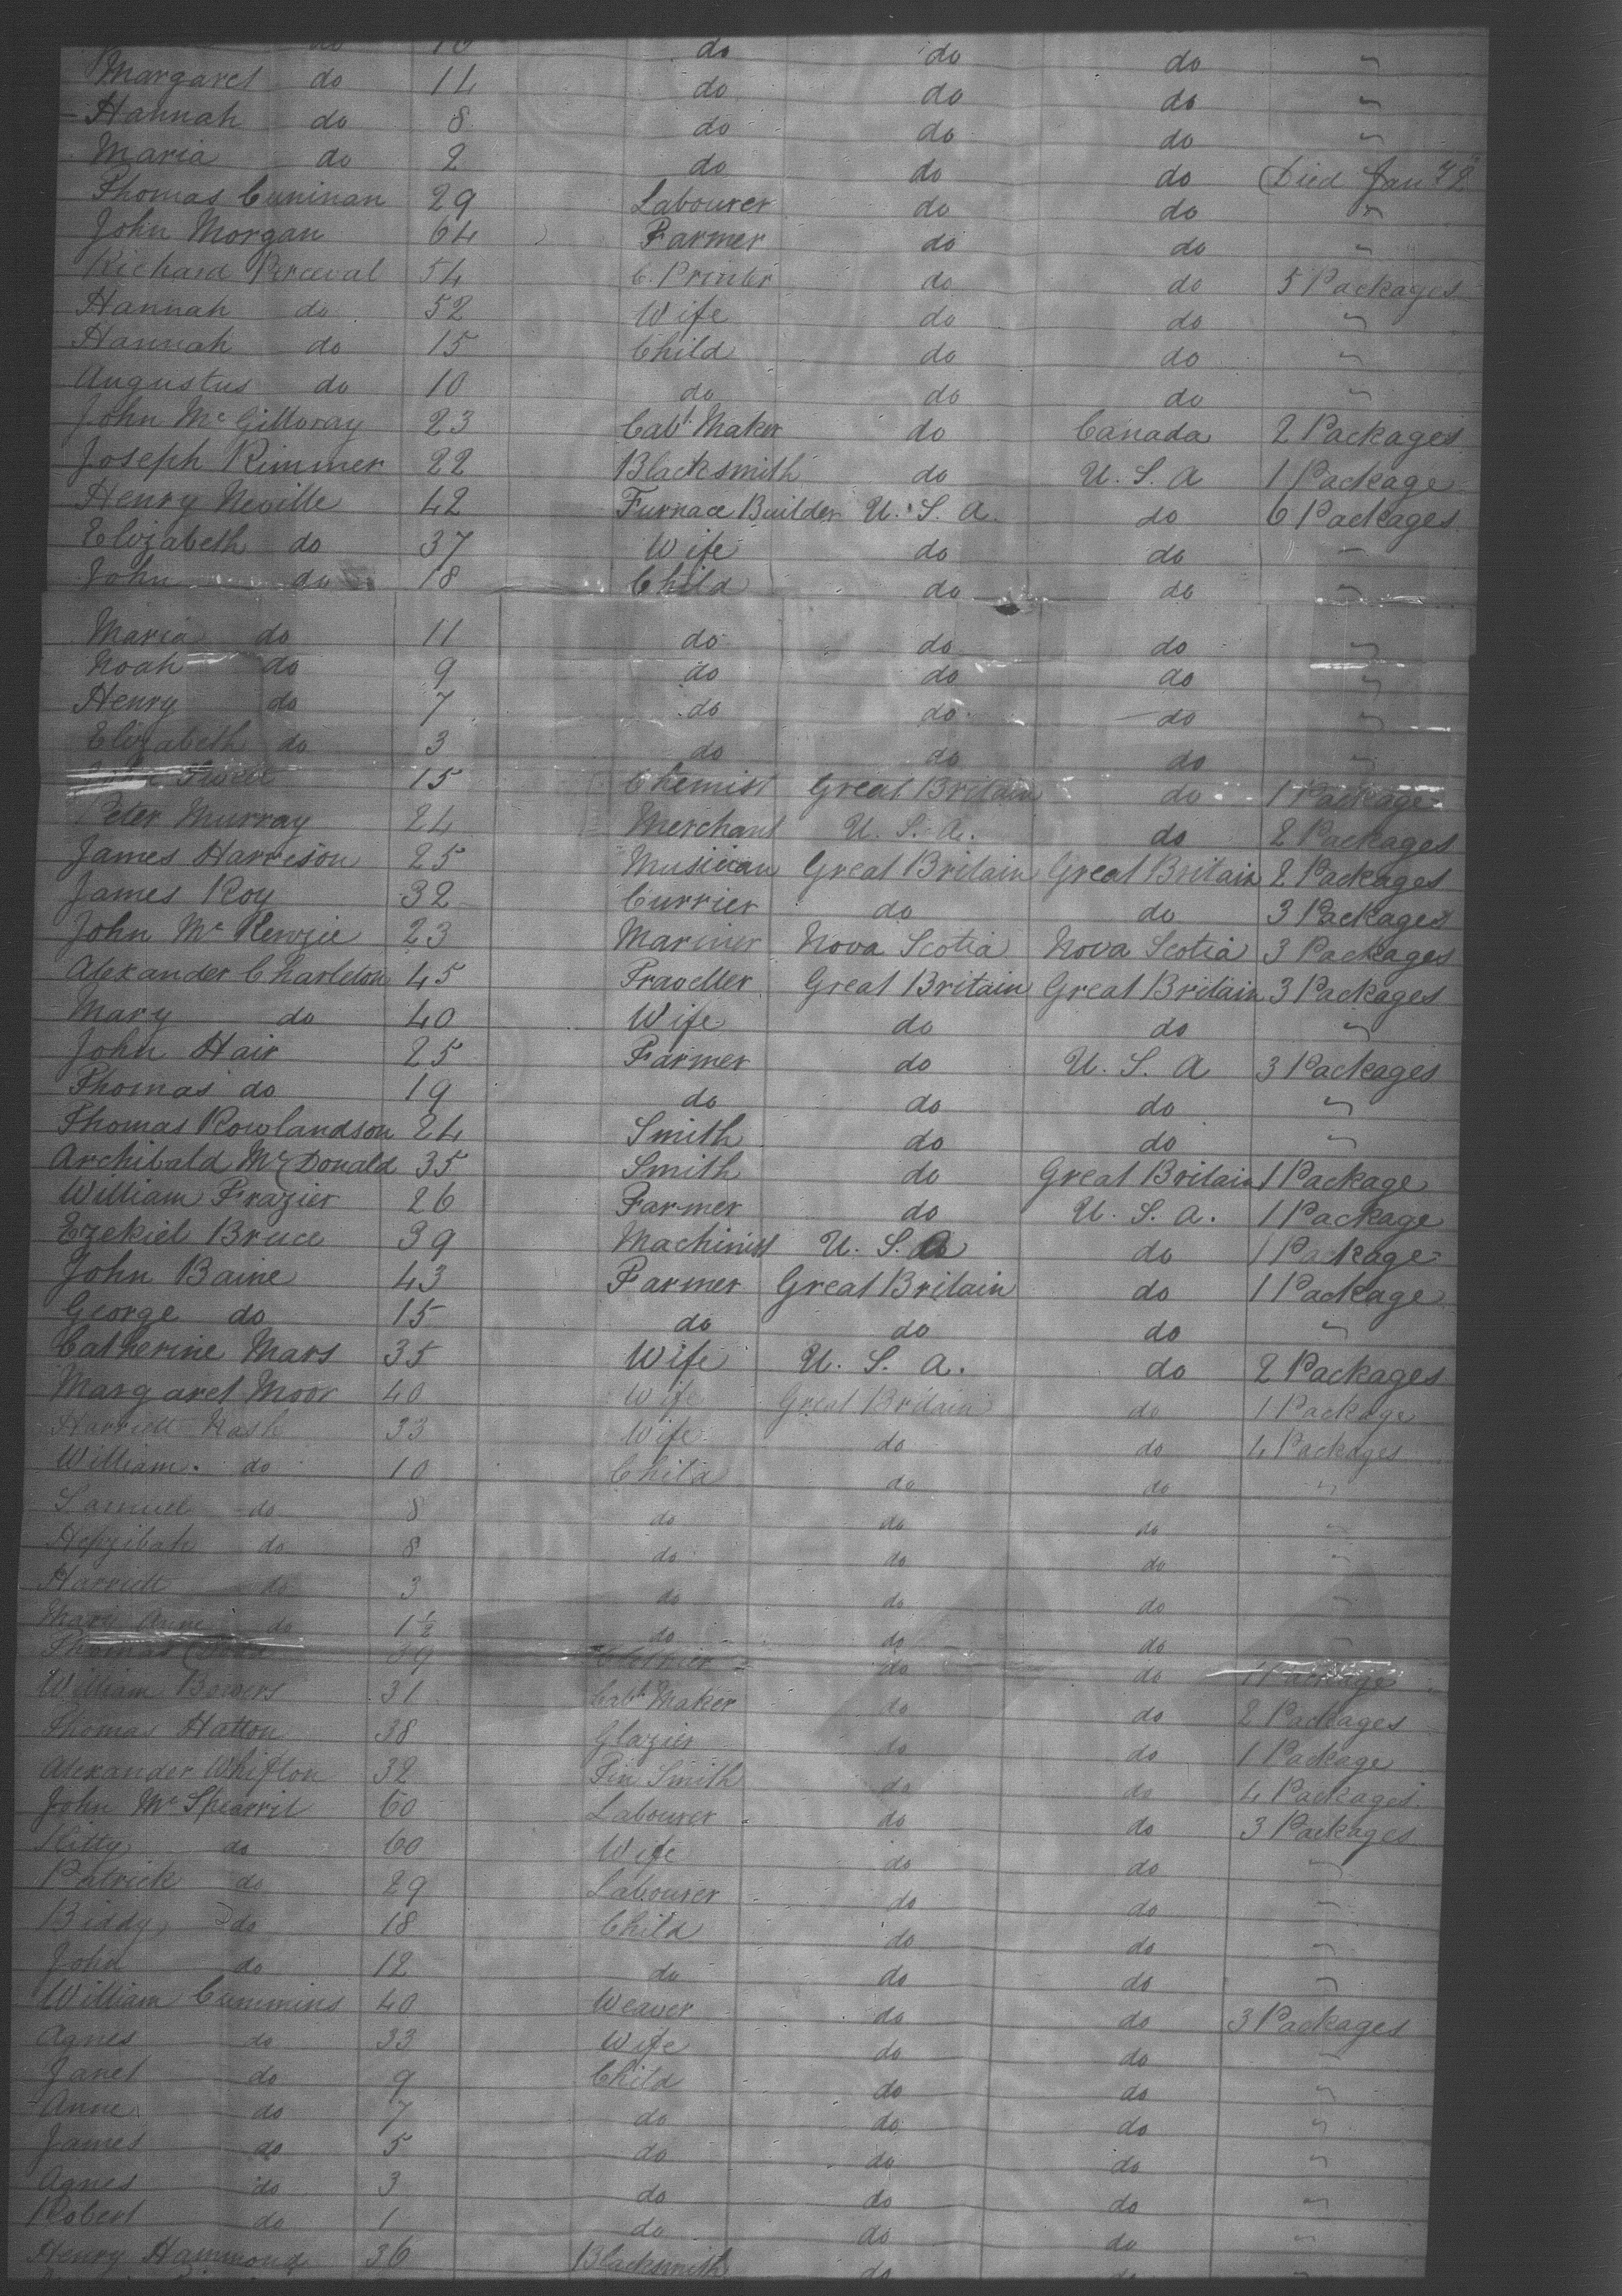 do 10 do do do "
Margaret do 14 do do do "
Hannah do 8 do do do "
Maria do 2 do do do Died Jan 72
Thomas Cuninan 29 Labourer do do "
John Morgan 64 Farmer do do "
Richard Perceval 54 C. Printer do do 5 Packages
Hannah do 52 Wife do do "
Hannah do 15 Child do do "
Augustus do 10 do do do "
John McGillvray 23 Cabt. Maker do Canada 2 Packages
Joseph Rimmer 22 Blacksmith do U. S. A 1 Package
Henry Neville 42 Furnace Builder U. S. A. do 6 Packages
Elizabeth do 37 Wife do do "
John do 18 Child do do "
Maria do 11 do do do "
Noah do 9 do do do "
Henry do 7 do do do "
Elizabeth do 3 do do do "
15 Chemist Great Britain do 1 Package
Peter Murray 24 Merchant U. S. A. do 2 Packages
James Harrison 25 Musician Great Britain Great Britain 2 Packages
James Roy 32 Currier do do 3 Packages
John McKenzie 23 Mariner Nova Scotia Nova Scotia 3 Packages
Alexander Charleton 45 Traveller Great Britain Great Britain 3 Packages
Mary do 40 Wife do do "
John Hair 25 Farmer do U. S. A 3 Packages
Thomas do 19 do do do "
Thomas Rowlandson 24 Smith do do "
Archibald McDonald 35 Smith do Great Britain 1 Package
William Frazier 26 Farmer do U. S. A. 1 Package
Ezekiel Bruce 39 Machinist U. S. A do 1 Package
John Baine 43 Farmer Great Britain do 1 Package
George do 15 do do do "
Catherine Mars 35 Wife U. S. A. do 2 Packages
Margaret Moor 40 Wife Great Britain do 1 Package
Harriett Nash 33 Wife do do 4 Packages
William do 10 Child do do "
Samuel do 8 do do do "
Hepzibah do 8 do do do "
Harriett do 3 do do do "
Mary Anne do 1½ do do do "
Thomas 39 do do 1 Package
William Bowers 31 Cabt. Maker do do 2 Packages
Thomas Hatton 38 Glazier do do 1 Package
Alexander Whifton 32 Tin Smith do do 4 Packages
John McSpearrit 60 Labourer do do 3 Packages
Kitty do 60 Wife do do "
Patrick do 29 Labourer do do "
Biddy do 18 Child do do "
John do 12 do do do "
William Cummins 40 Weaver do do 3 Packages
Agnes do 33 Wife do do "
Janet do 9 Child do do "
Anne do 7 do do do "
James do 5 do do do "
Agnes do 3 do do do "
Robert do 1 do do do "
Henry Hammond 36 Blacksmith do do "